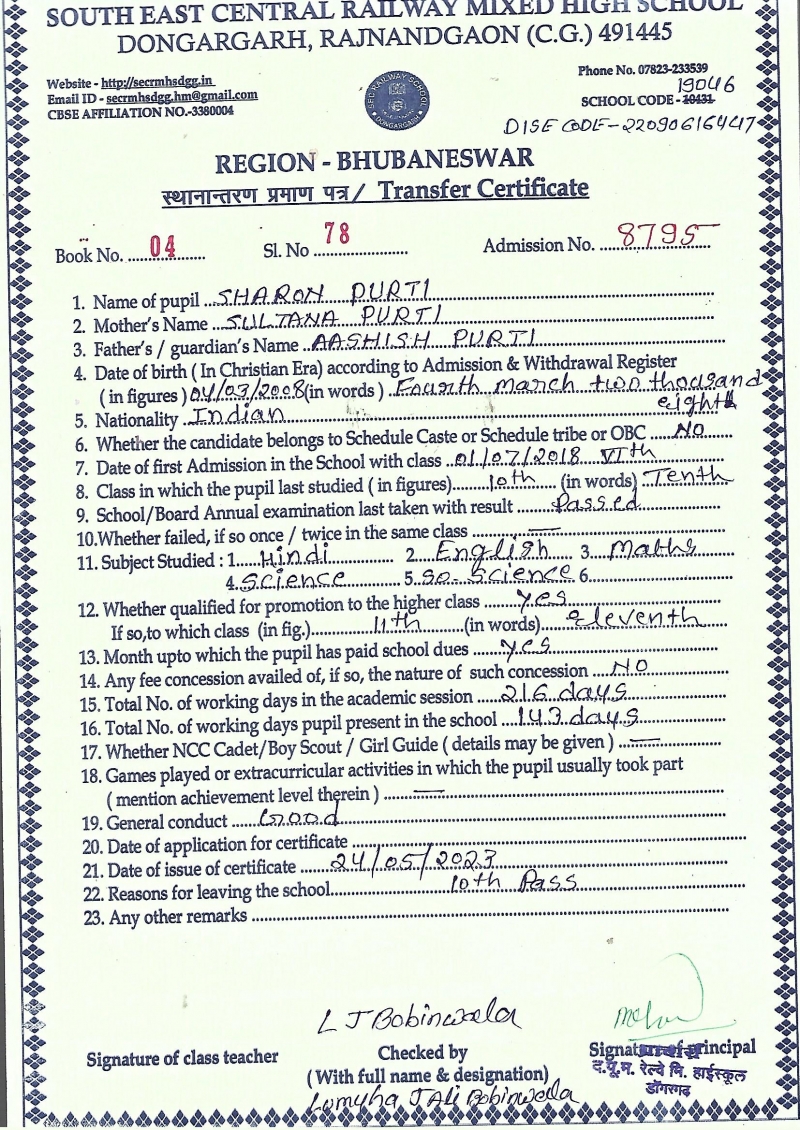 SOUTH EAST CENTRAL RAILWAY MIXED HIGH SCHOOL
DONGARGARH, RAJNANDGAON (C.G.) 491445
Website - http://secrmhsdgg.in
Email ID - secrmhsdgg.hm@gmail.com
CBSE AFFILIATION NO.-3380004
SEC RAILWAY SCHOOL
DONGARGARH
Phone No. 07823-233539
19046
SCHOOL CODE - 10431
DISE CODE - 22090616447
REGION - BHUBANESWAR
स्थानान्तरण प्रमाण पत्र / Transfer Certificate
Book No. 04 Sl. No 78 Admission No. 8795
1. Name of pupil SHARON PURTI
2. Mother's Name SULTANA PURTI
3. Father's / guardian's Name AASHISH PURTI
4. Date of birth ( In Christian Era) according to Admission & Withdrawal Register
( in figures ) 04/03/2008 (in words ) Fourth March two thousand
eighth
5. Nationality Indian
6. Whether the candidate belongs to Schedule Caste or Schedule tribe or OBC NO
7. Date of first Admission in the School with class 01/07/2018 VIth
8. Class in which the pupil last studied ( in figures) 10th (in words) Tenth
9. School/Board Annual examination last taken with result Passed
10.Whether failed, if so once / twice in the same class —
11. Subject Studied : 1. Hindi 2. English 3. Maths
4. Science 5. So-Science 6.
12. Whether qualified for promotion to the higher class yes
If so,to which class (in fig.) 11th (in words) Eleventh
13. Month upto which the pupil has paid school dues yes
14. Any fee concession availed of, if so, the nature of such concession NO
15. Total No. of working days in the academic session 216 days
16. Total No. of working days pupil present in the school 143 days
17. Whether NCC Cadet/Boy Scout / Girl Guide ( details may be given ) —
18. Games played or extracurricular activities in which the pupil usually took part
( mention achievement level therein ) —
19. General conduct Good
20. Date of application for certificate
21. Date of issue of certificate 24/05/2023
22. Reasons for leaving the school 10th Pass
23. Any other remarks
L J Bobinwala
Signature of class teacher Checked by Signature of Principal
(With full name & designation)
प्राचार्य
द.पू.म. रेल्वे मि. हाईस्कूल
डोंगरगढ़
J Ali Bobinwala